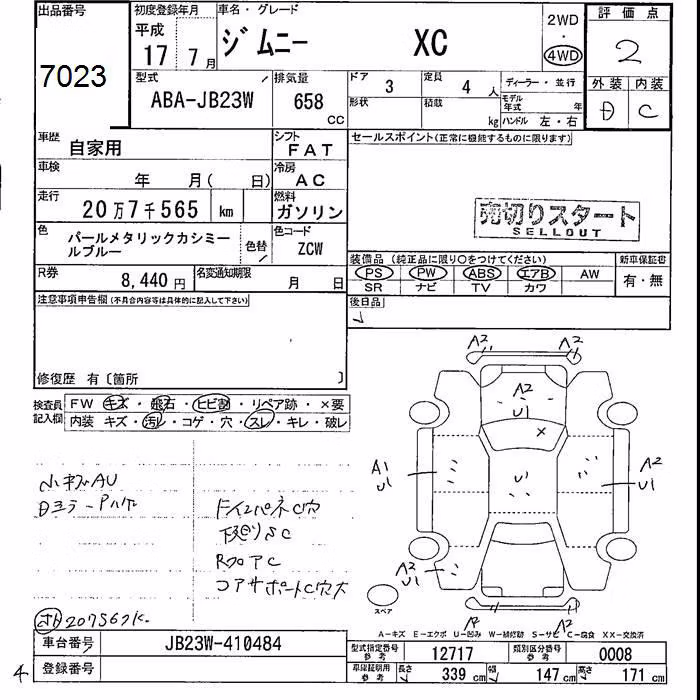 出品番号
7023
初度登録年月
平成
17 7月
車名・グレード
ジムニー XC
2WD
・
4WD
評価点
2
外装 内装
D C
型式
ABA-JB23W
排気量
658
CC
ドア
3
定員
4 人
形状
積載
kg
ディーラー・並行
モデル年式 年
ハンドル 左・右
車歴
自家用
シフト
FAT
車検
年 月( 日)
冷房
AC
走行
20万7千565 km
燃料
ガソリン
色
パールメタリックカシミールブルー
色替
色コード
ZCW
R券
8,440 円
名変通知期限
月 日
セールスポイント(正常に機能するものに限ります)
売切りスタート
SELLOUT
装備品 (純正品に限り○をつけてください)
PS PW ABS エアB AW
SR ナビ TV カワ
新車保証書
有・無
後日品
注意事項申告欄(不具合内容等は具体的に記入して下さい)
修復歴 有〔箇所 〕
検査員記入欄
FW キズ・飛石・ヒビ割・リペア跡・×要
内装 キズ・汚レ・コゲ・穴・スレ・キレ・破レ
小キズAU
下廻りSC
RフロアC
コアサポートC穴大
207567K
A2
A2
A2
U1
A1
U1
U1
A2
U1
A2
U1
A2
スペア
A-キズ E-エクボ U-凹み W-補修跡 S-サビ C-腐食 XX-交換済
車台番号
JB23W-410484
登録番号
4
型式指定番号
参考
12717
類別区分番号
参考
0008
車庫証明用
参考
長さ 339 cm
幅 147 cm
高さ 171 cm